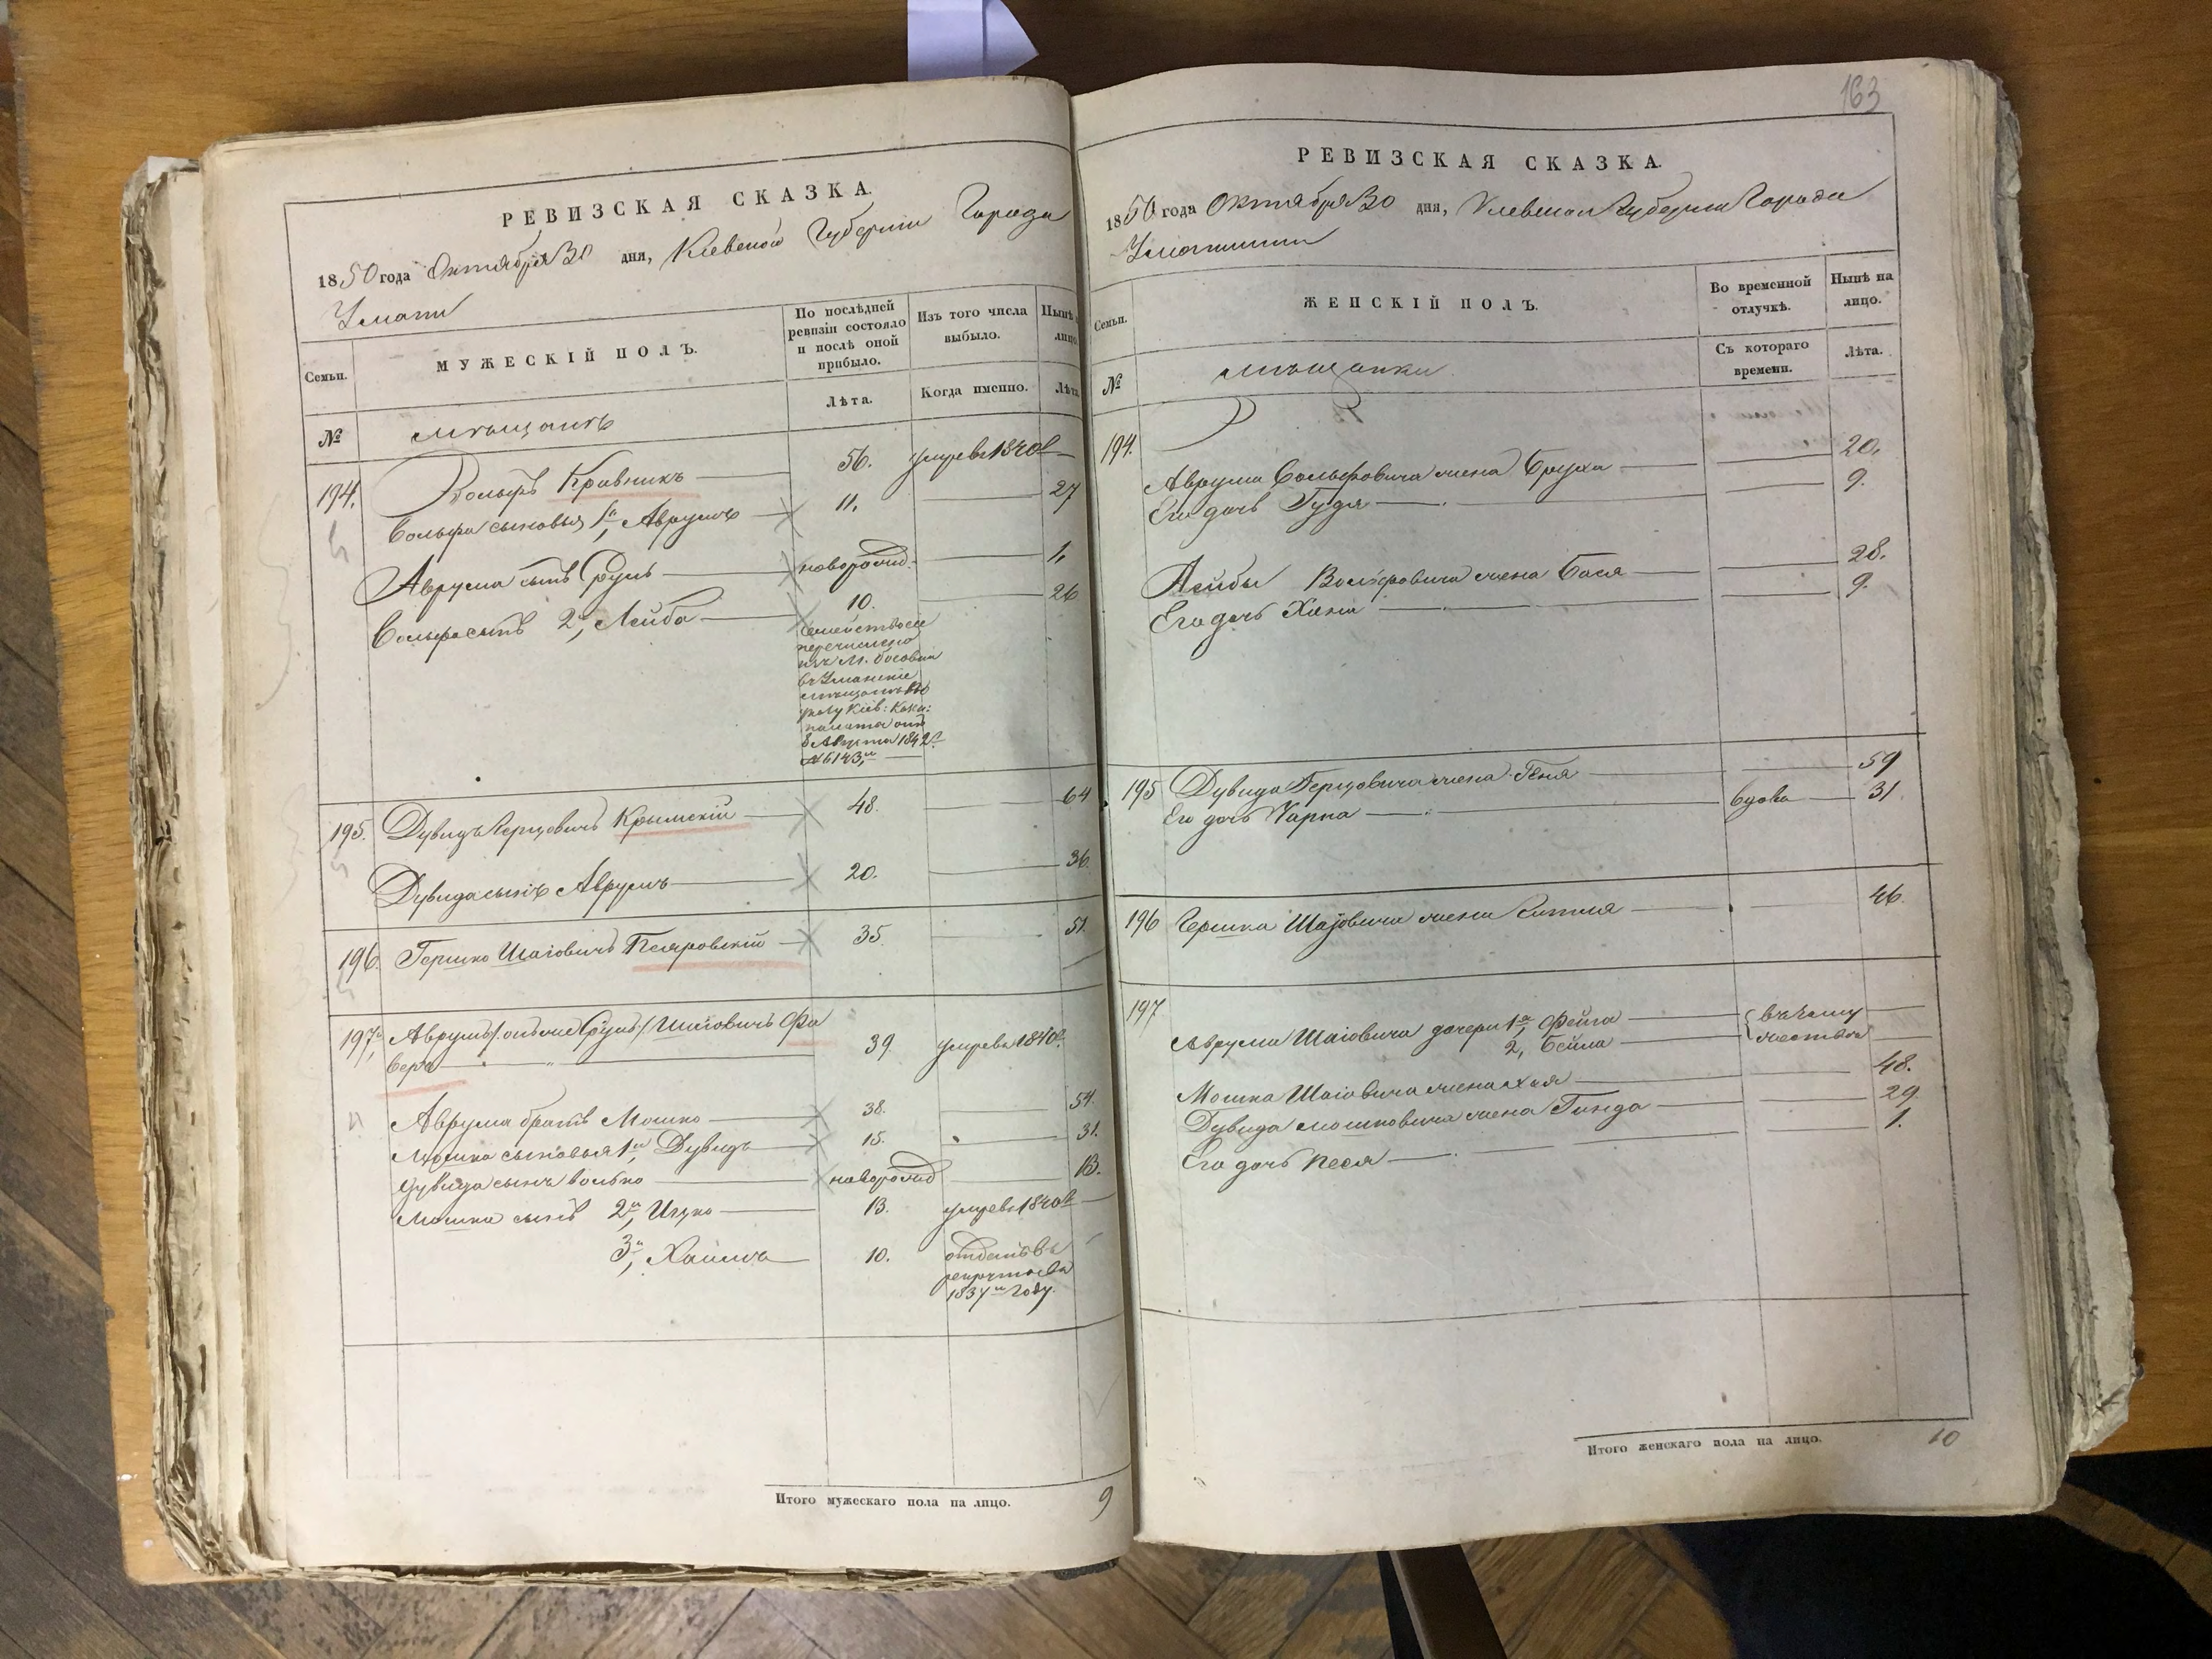 РЕВИЗСКАЯ СКАЗКА.
1850 года Октября 30 дня, Кіевской Губерніи Города
Умани
Семьи.
МУЖЕСКІЙ ПОЛЪ.
По послѣдней
ревизіи состояло
и послѣ оной
прибыло.
Изъ того числа
выбыло.
Нынѣ
лицо.
№
Лѣта.
Когда именно.
Лѣта
мѣщанъ
194. Вольфъ Кравникъ 56. умре въ 1840
Вольфа сыновья 1й, Аврумъ 11. 27
Аврума сынъ Сруль новорожд. 1.
Вольфа сынъ 2й, Лейба 10. 26
Семейство сіе
перечислено
изъ М.
въ Уманскіе
мѣщане по
указу Кіев: Казн:
палаты отъ
8 Августа 1842
№ 6143.
195. Дувидъ Герцовичъ Крымскій 48. 64
Дувида сынъ Аврумъ 20. 36.
196. Гершко Шаіовичъ 35. 51.
197. Аврумъ онъ же Сруль Шаіовичъ Фа
веръ 39. умре въ 1840
Аврума братъ Мошко 38. 54.
Мошка сыновья 1й, Дувидъ 15. 31.
Дувида сынъ Волько новорожд 13.
Мошка сынъ 2й, Ицко 13. умре въ 1840
3й, Хаимъ 10. отданъ въ
рекруты въ
1837м Году.
Итого мужескаго пола на лицо. 9
163
РЕВИЗСКАЯ СКАЗКА.
1850 года Октября 30 дня, Кіевской Губерніи Города
Умани
Семьи.
ЖЕНСКІЙ ПОЛЪ.
Во временной
отлучкѣ.
Нынѣ на
лицо.
№
Съ котораго
времени.
Лѣта.
мѣщанки
194. Аврума Вольфовича жена Бруха 20.
Его дочь Гудя 9.
Лейбы Вольфовича жена Бася 28.
Его дочь Хана 9.
195 Дувида Герцовича жена Геня 59
Его дочь Чарна вдова 31
196 Гершка Шаіовича жена Ситля 46.
197 Аврума Шаіовича дочери 1я, Фейга
2, Бейла
въ замужествѣ
Мошка Шаіовича жена Хая 48.
Дувида Мошковича жена Гинда 29.
Его дочь Песя 1.
Итого женскаго пола на лицо. 10